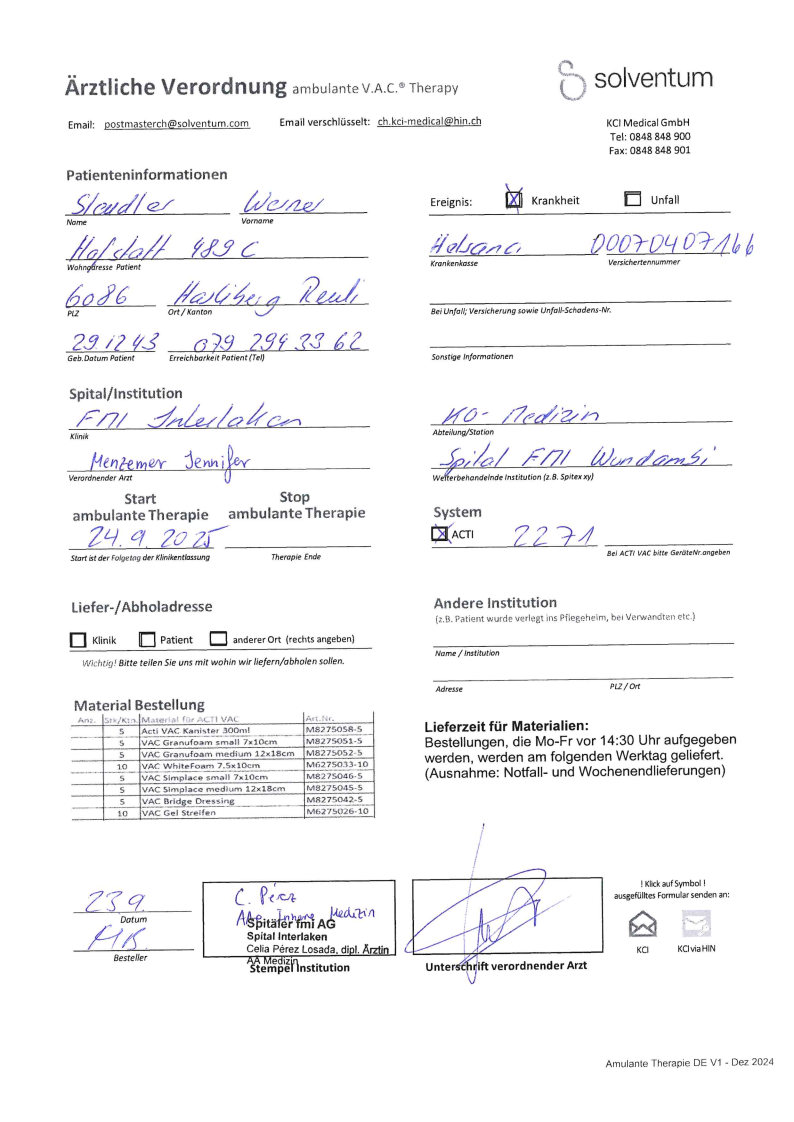 Ärztliche Verordnung ambulante V.A.C.® Therapy
solventum
Email: postmasterch@solventum.com Email verschlüsselt: ch.kci-medical@hin.ch
KCI Medical GmbH
Tel: 0848 848 900
Fax: 0848 848 901
Patienteninformationen
Werner
Name Vorname
Hofstatt 489 C
Wohnadresse Patient
6086 Hasliberg Reuti
PLZ Ort / Kanton
291243 079 299 33 62
Geb.Datum Patient Erreichbarkeit Patient (Tel)
Ereignis: Krankheit Unfall
Helsana 0007040716 6
Krankenkasse Versichertennummer
Bei Unfall; Versicherung sowie Unfall-Schadens-Nr.
Sonstige Informationen
Spital/Institution
FMI Interlaken
Klinik
Menzemer Jennifer
Verordnender Arzt
KO- Medizin
Abteilung/Station
Spital FMI Wundambi
Weiterbehandelnde Institution (z.B. Spitex xy)
Start Stop
ambulante Therapie ambulante Therapie
24.9.2025
Start ist der Folgetag der Klinikentlassung Therapie Ende
System
ACTI 2271
Bei ACTI VAC bitte GeräteNr.angeben
Liefer-/Abholadresse
Klinik Patient anderer Ort (rechts angeben)
Wichtig! Bitte teilen Sie uns mit wohin wir liefern/abholen sollen.
Andere Institution
(z.B. Patient wurde verlegt ins Pflegeheim, bei Verwandten etc.)
Name / Institution
Adresse PLZ / Ort
Material Bestellung
Anz. Stk/Ktn. Material für ACTI VAC Art.Nr.
5 Acti VAC Kanister 300ml M8275058-5
5 VAC Granufoam small 7x10cm M8275051-5
5 VAC Granufoam medium 12x18cm M8275052-5
10 VAC WhiteFoam 7.5x10cm M6275033-10
5 VAC Simplace small 7x10cm M8275046-5
5 VAC Simplace medium 12x18cm M8275045-5
5 VAC Bridge Dressing M8275042-5
10 VAC Gel Streifen M6275026-10
Lieferzeit für Materialien:
Bestellungen, die Mo-Fr vor 14:30 Uhr aufgegeben
werden, werden am folgenden Werktag geliefert.
(Ausnahme: Notfall- und Wochenendlieferungen)
23 9.
Datum
Besteller
C. Pérez
Innere Medizin
Spitäler fmi AG
Spital Interlaken
Celia Pérez Losada, dipl. Ärztin
AA Medizin
Stempel Institution
Unterschrift verordnender Arzt
! Klick auf Symbol !
ausgefülltes Formular senden an:
KCI KCI via HIN
Amulante Therapie DE V1 - Dez 2024